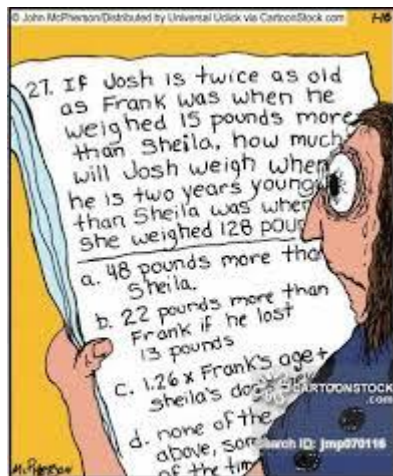 © John McPherson/Distributed by Universal Uclick via CartoonStock.com
1-16
27. If Josh is twice as old
as Frank was when he
weighed 15 pounds more
than Sheila, how much
will Josh weigh when
he is two years young
than Sheila was when
she weighed 128 pou
a. 48 pounds more tha
Sheila.
b. 22 pounds more than
Frank if he lost
13 pounds
c. 1.26 x Frank's age +
Sheila's do
d. none of the
above, som
of the tim
CARTOONSTOCK
.com
Search ID: jmp070116
McPherson